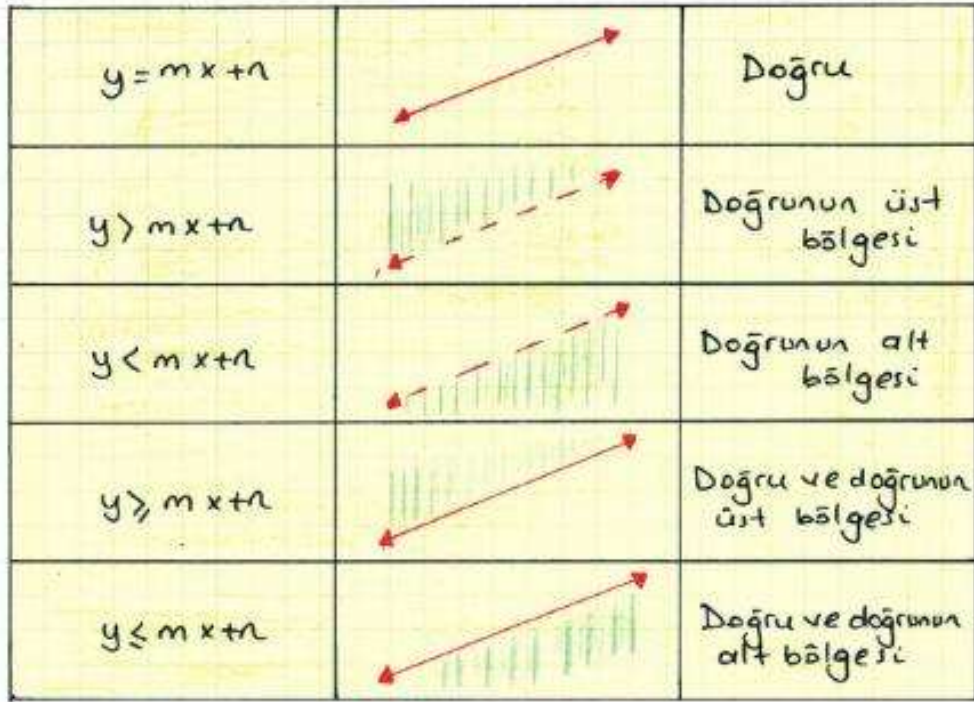 y = mx+n
Doğru
y > mx+n
Doğrunun üst
bölgesi
y < mx+n
Doğrunun alt
bölgesi
y ≥ mx+n
Doğru ve doğrunun
üst bölgesi
y ≤ mx+n
Doğru ve doğrunun
alt bölgesi